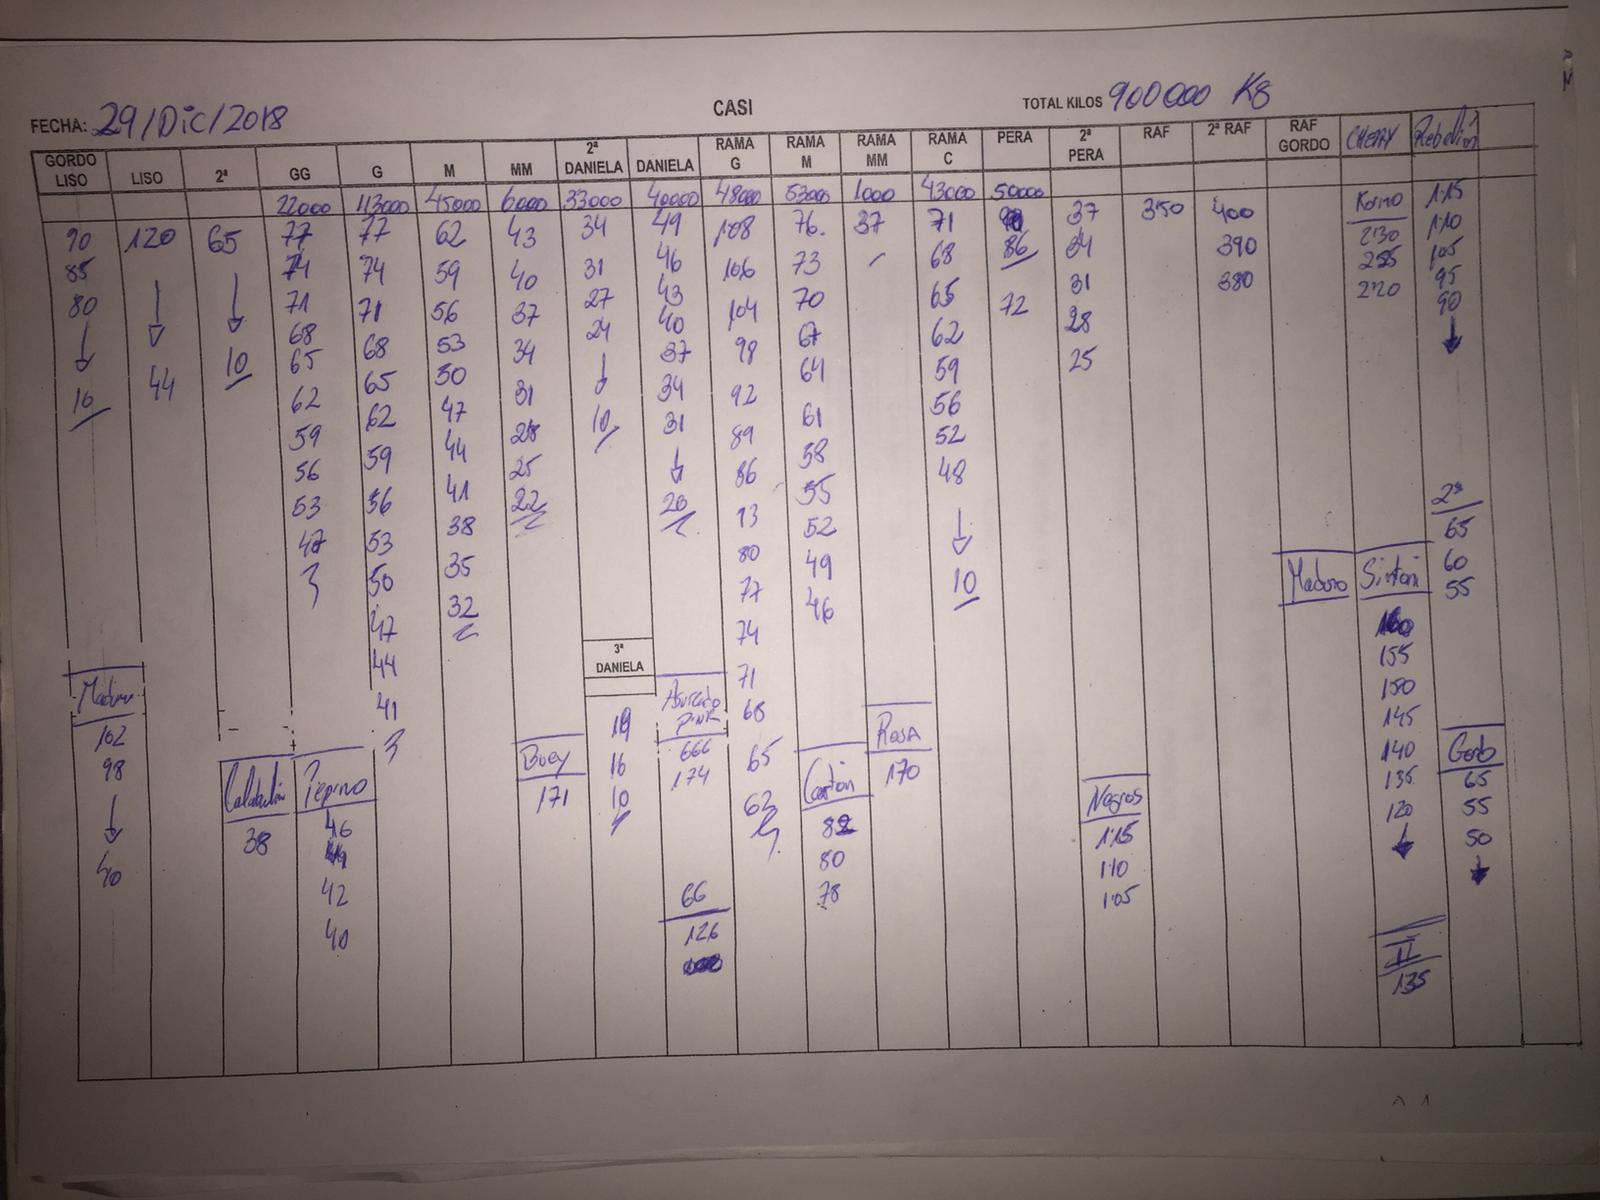 FECHA: 29/Dic/2018 CASI TOTAL KILOS 900000 Kg
GORDO LISO LISO 2ª GG G M MM 2ª DANIELA DANIELA RAMA G RAMA M RAMA MM RAMA C PERA 2ª PERA RAF 2ª RAF RAF GORDO CHERY
22000 113000 45000 6000 33000 40000 48000 53000 1000 43000 50000
90 120 65 77 77 62 43 34 49 108 76 37 71 37 350 400 115
85 74 74 59 40 31 46 106 73 68 86 34 390 230 110
80 71 71 56 37 27 43 104 70 65 72 31 380 225 105
68 68 53 34 24 40 98 67 62 28 220 95
16 44 10 65 65 50 31 10 37 92 64 59 25 90
62 62 47 28 34 89 61 56
59 59 44 25 31 86 58 52
56 56 41 22 20 55 48 2ª
53 53 38 80 52 10 65
47 50 35 77 49 60
47 32 74 46 55
44 71
41 68
65
62
3ª DANIELA
19
16
10
Maduro Sintari
155
150
145
140
135
120
II
135
102
98
40
Pepino
38 46
42
40
Buey
171
PINK
666
174
66
126
Cartón
82
80
78
Rosa
170
Negros
115
110
105
Gordo
65
55
50